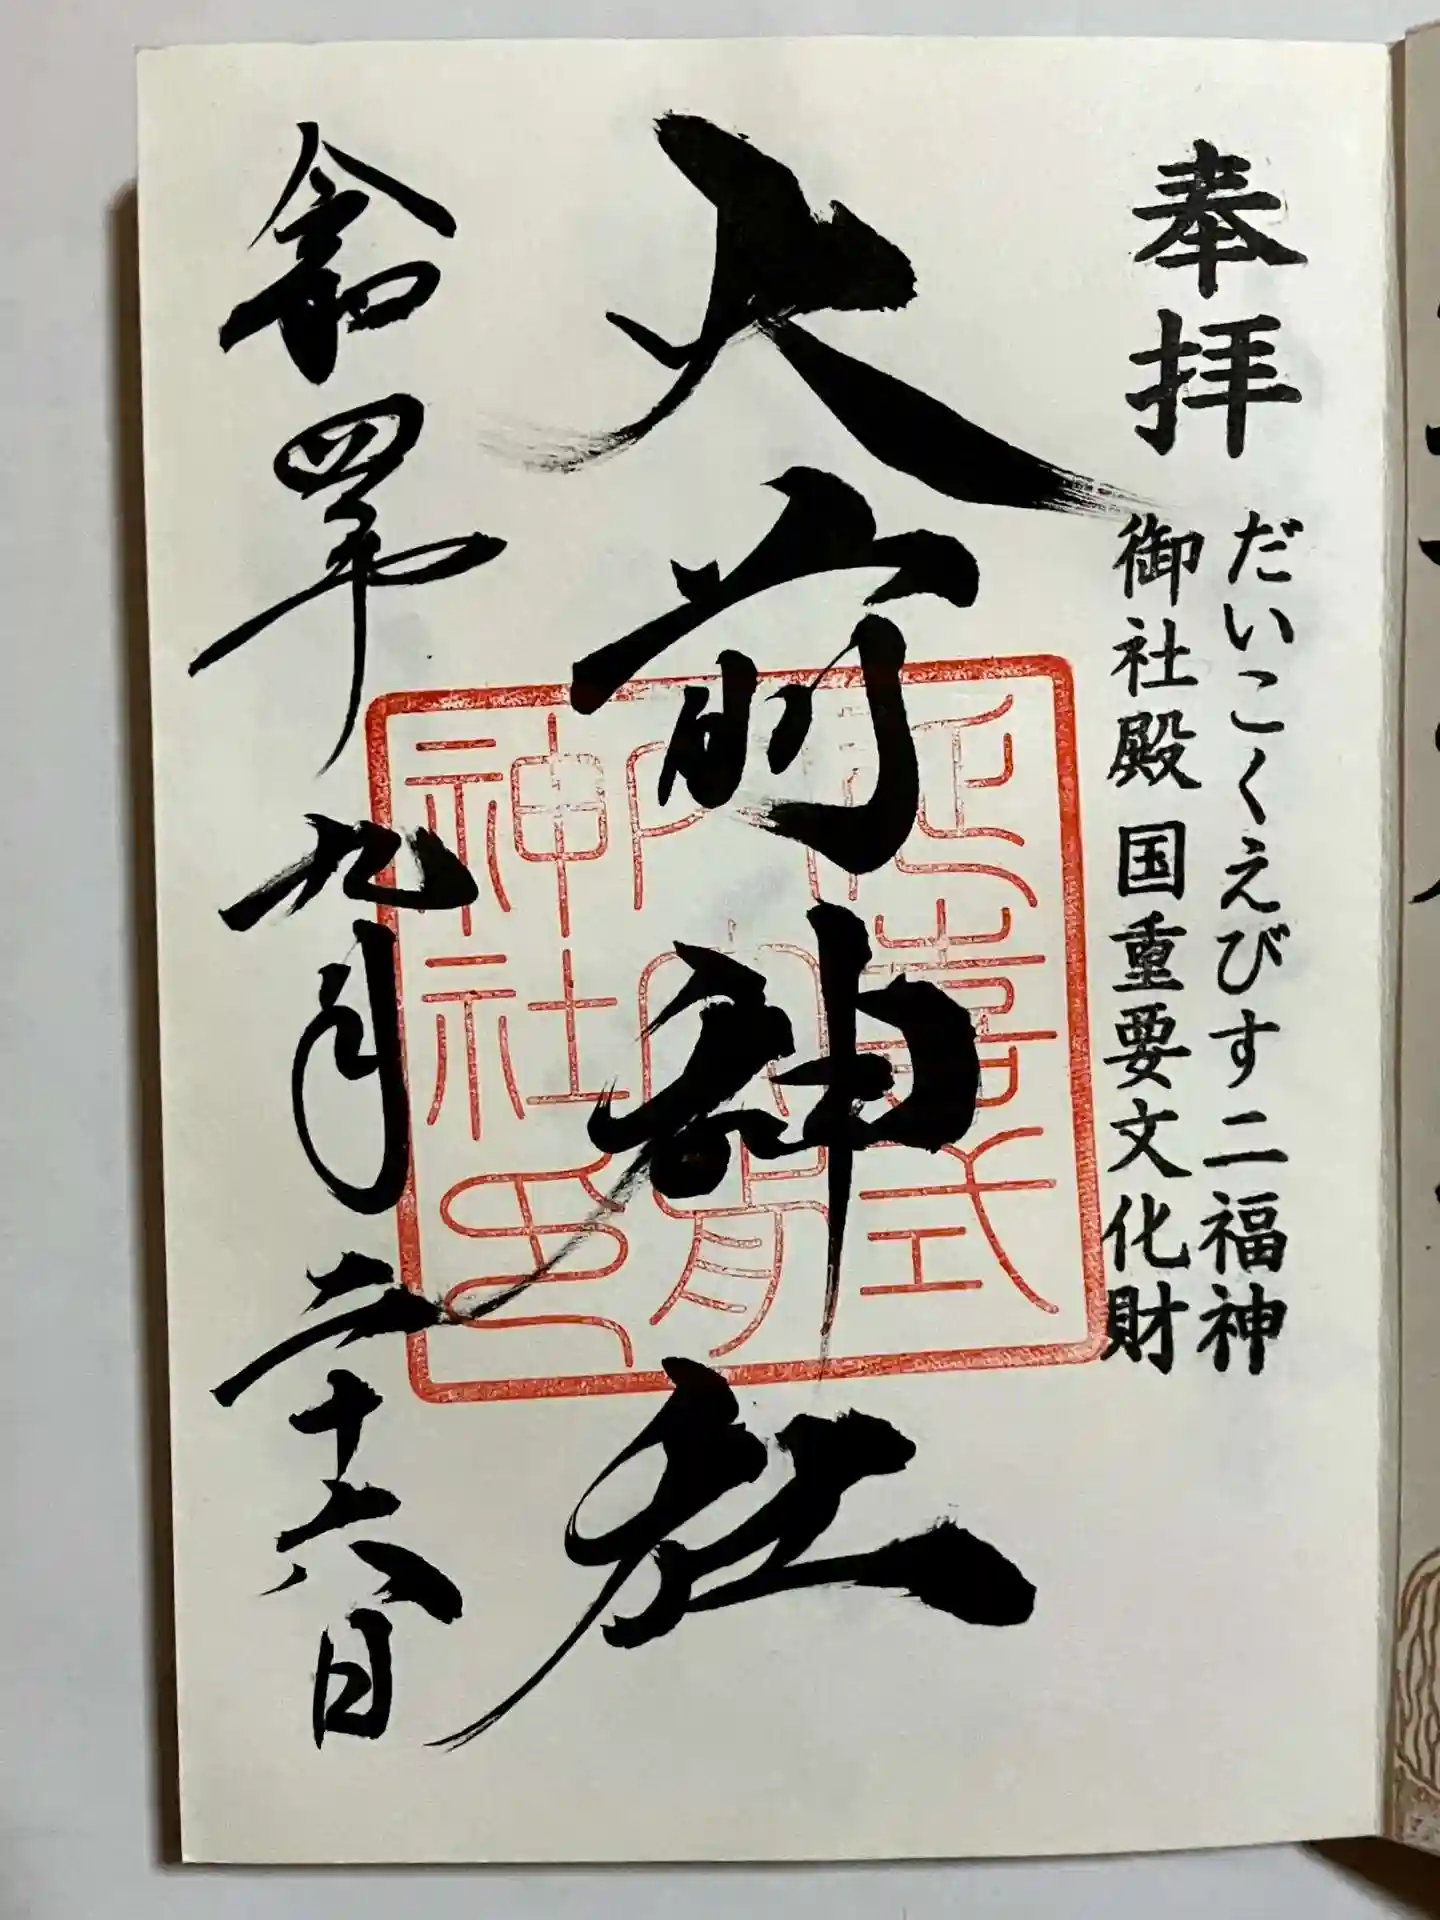 奉拝
だいこくえびす二福神
御社殿 国重要文化財
大前神社
延喜式
内大前
神社印
令和四年九月二十六日